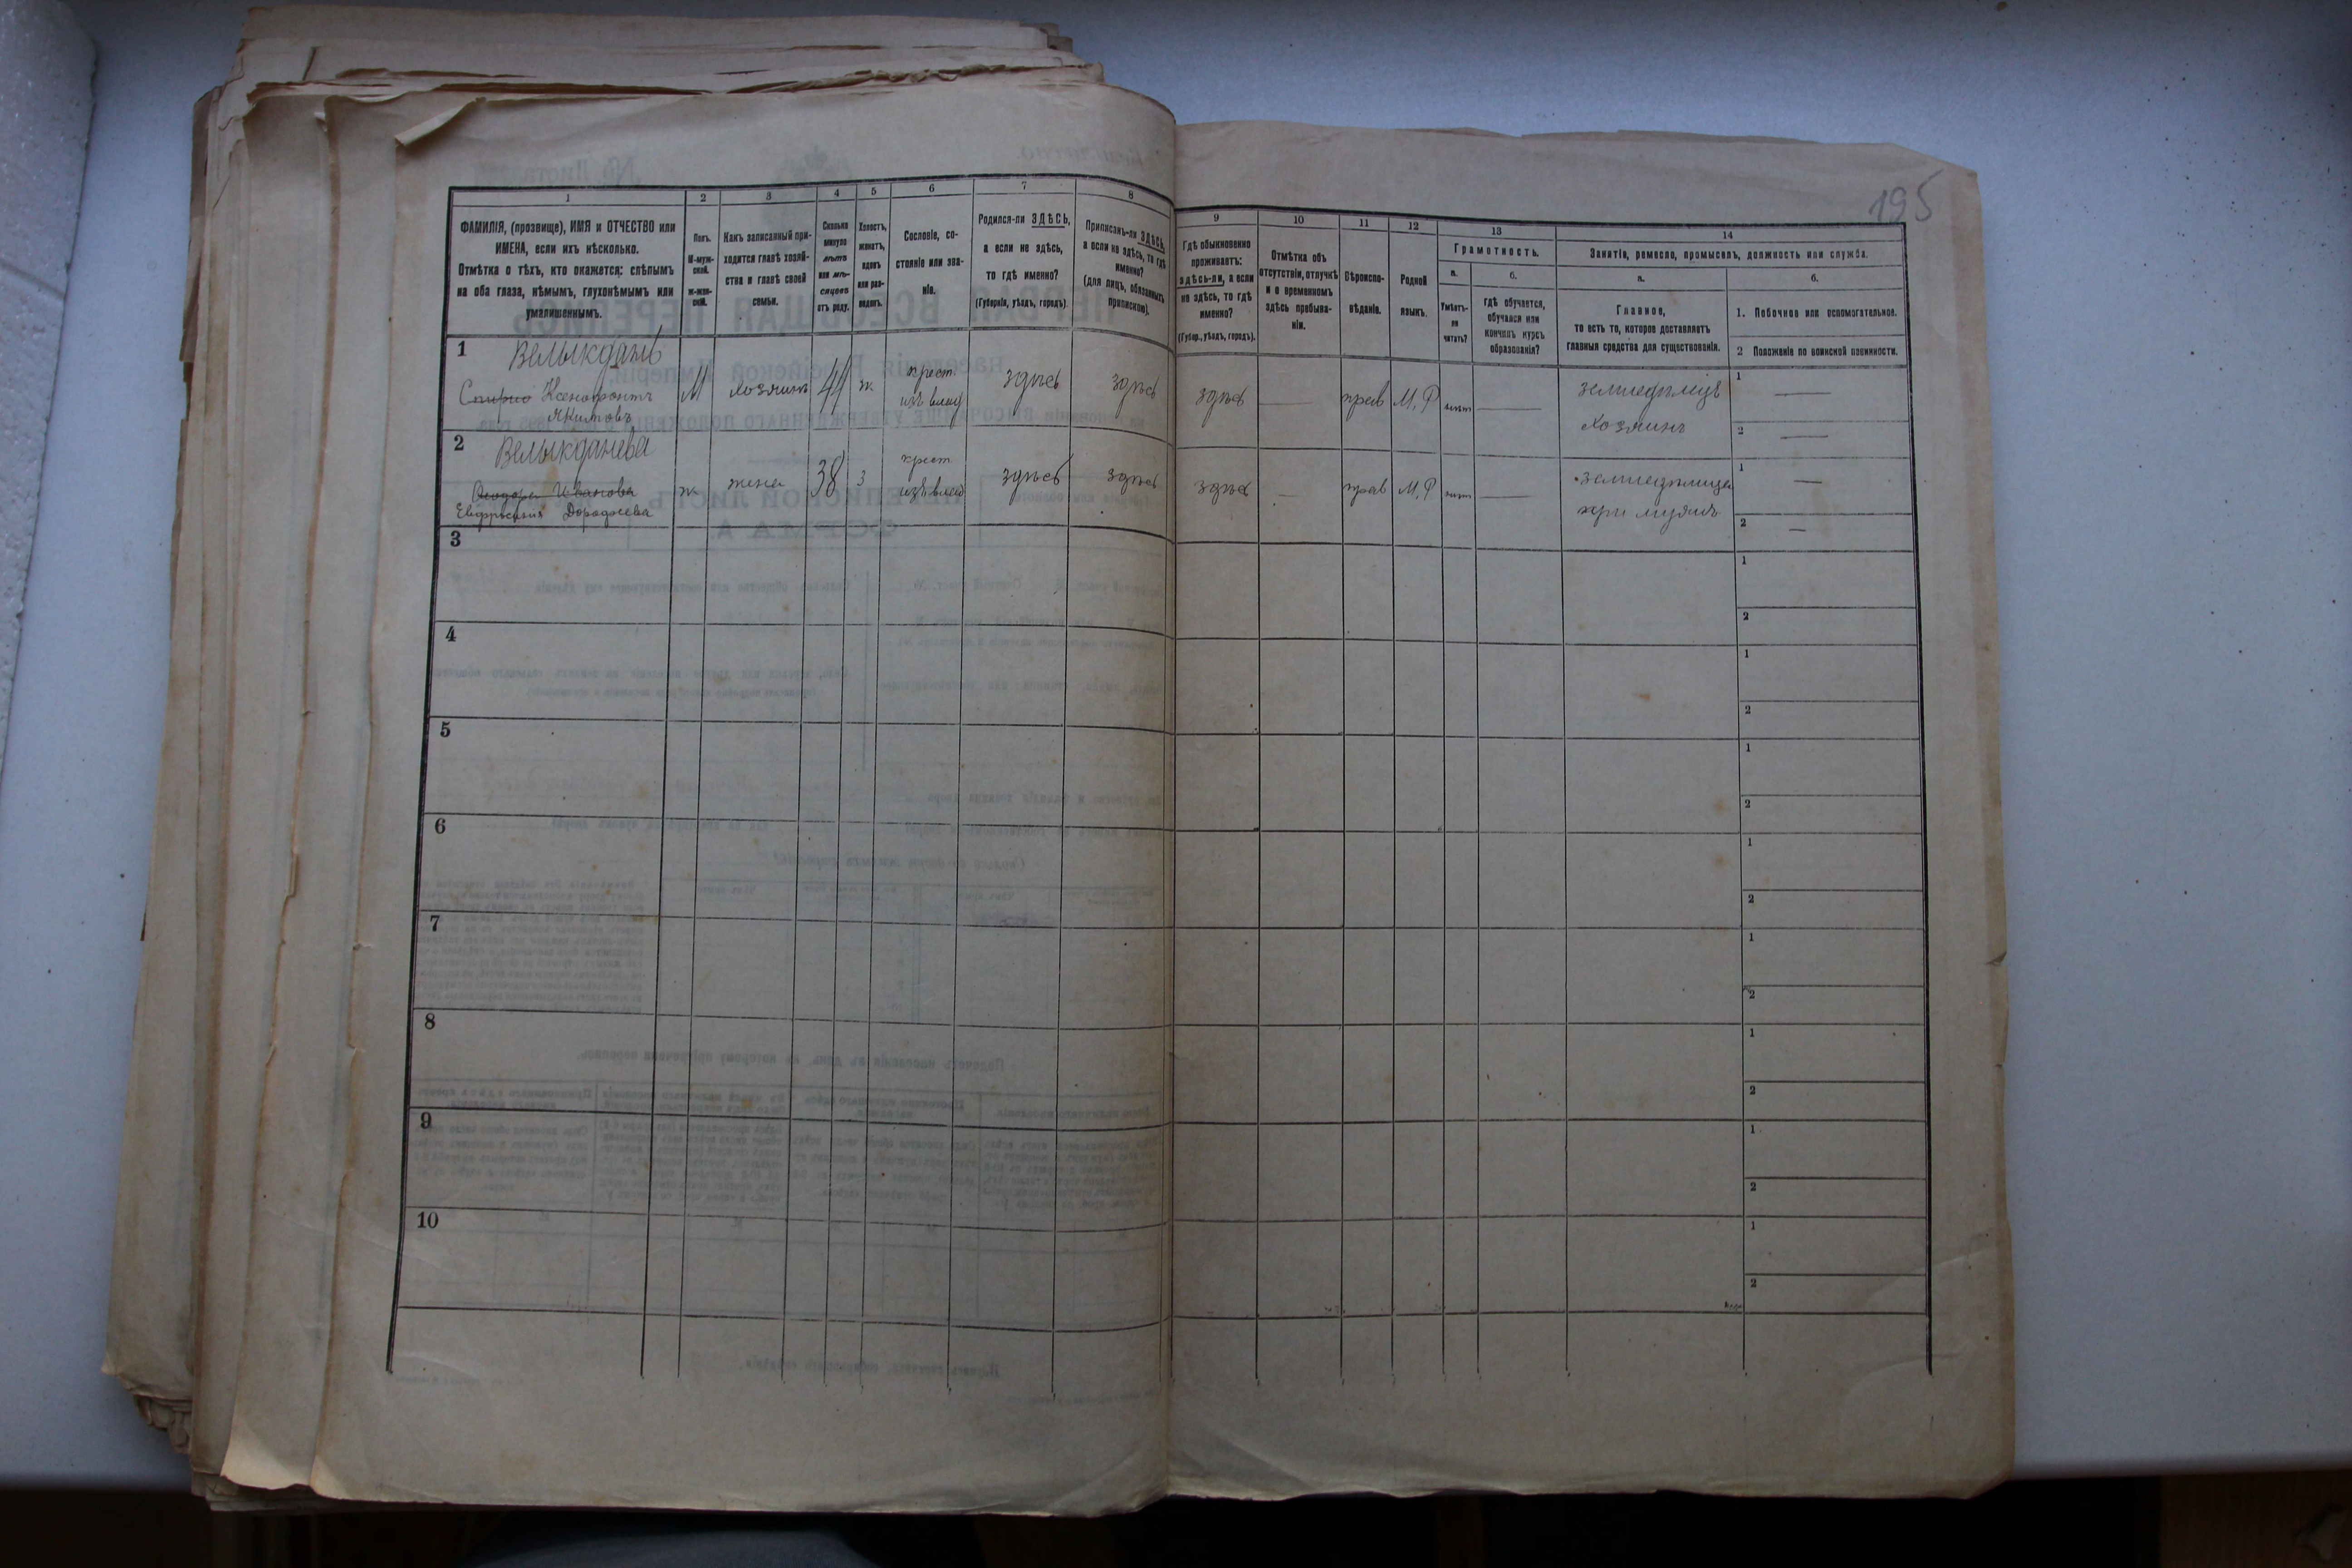 195
1
ФАМИЛІЯ, (прозвище), ИМЯ и ОТЧЕСТВО или
ИМЕНА, если ихъ нѣсколько.
Отмѣтка о тѣхъ, кто окажется: слѣпымъ
на оба глаза, нѣмымъ, глухонѣмымъ или
умалишеннымъ.
2
Полъ.
М-муж-
ской.
ж-жен-
скій.
3
Какъ записанный при-
ходится главѣ хозяй-
ства и главѣ своей
семьи.
4
Сколько
минуло
лѣтъ
или мѣ-
сяцевъ
отъ роду.
5
Холостъ,
женатъ,
вдовъ
или раз-
веденъ.
6
Сословіе, со-
стояніе или зва-
ніе.
7
Родился-ли ЗДѢСЬ,
а если не здѣсь,
то гдѣ именно?
(Губернія, уѣздъ, городъ)
8
Приписанъ-ли ЗДѢСЬ,
а если не здѣсь, то гдѣ
именно?
(для лицъ, обязанныхъ
припискою).
9
Гдѣ обыкновенно
проживаетъ:
здѣсь-ли, а если
не здѣсь, то гдѣ
именно?
(Губер., уѣздъ, городъ).
10
Отмѣтка объ
отсутствіи, отлучкѣ
и о временномъ
здѣсь пребыва-
ніи.
11
Вѣроиспо-
вѣданіе.
12
Родной
языкъ.
13
Грамотность.
а.
Умѣетъ-
ли
читать?
б.
гдѣ обучается,
обучался или
кончилъ курсъ
образованія?
14
Занятіе, ремесло, промыселъ, должность или служба.
а.
Главное,
то есть то, которое доставляетъ
главныя средства для существованія.
б.
1. Побочное или вспомогательное.
2 Положеніе по воинской повинности.
1
Велыкдань
Ксенофонтъ
Якимовъ
М
хозяинъ
44
ж
крест
изъ влад
здѣсь
здѣсь
здѣсь
—
прав
М. Р
—
земледѣлецъ
хозяинъ
1 —
2 —
2
Велыкданева
Феодора Иванова
Евфросинія Дорофеева
ж
жена
38
з
крест
изъ влад
здѣсь
здѣсь
здѣсь
—
прав
М. Р
—
земледѣлица
при мужѣ
1 —
2 —
3
1
2
4
1
2
5
1
2
6
1
2
7
1
2
8
1
2
9
1
2
10
1
2